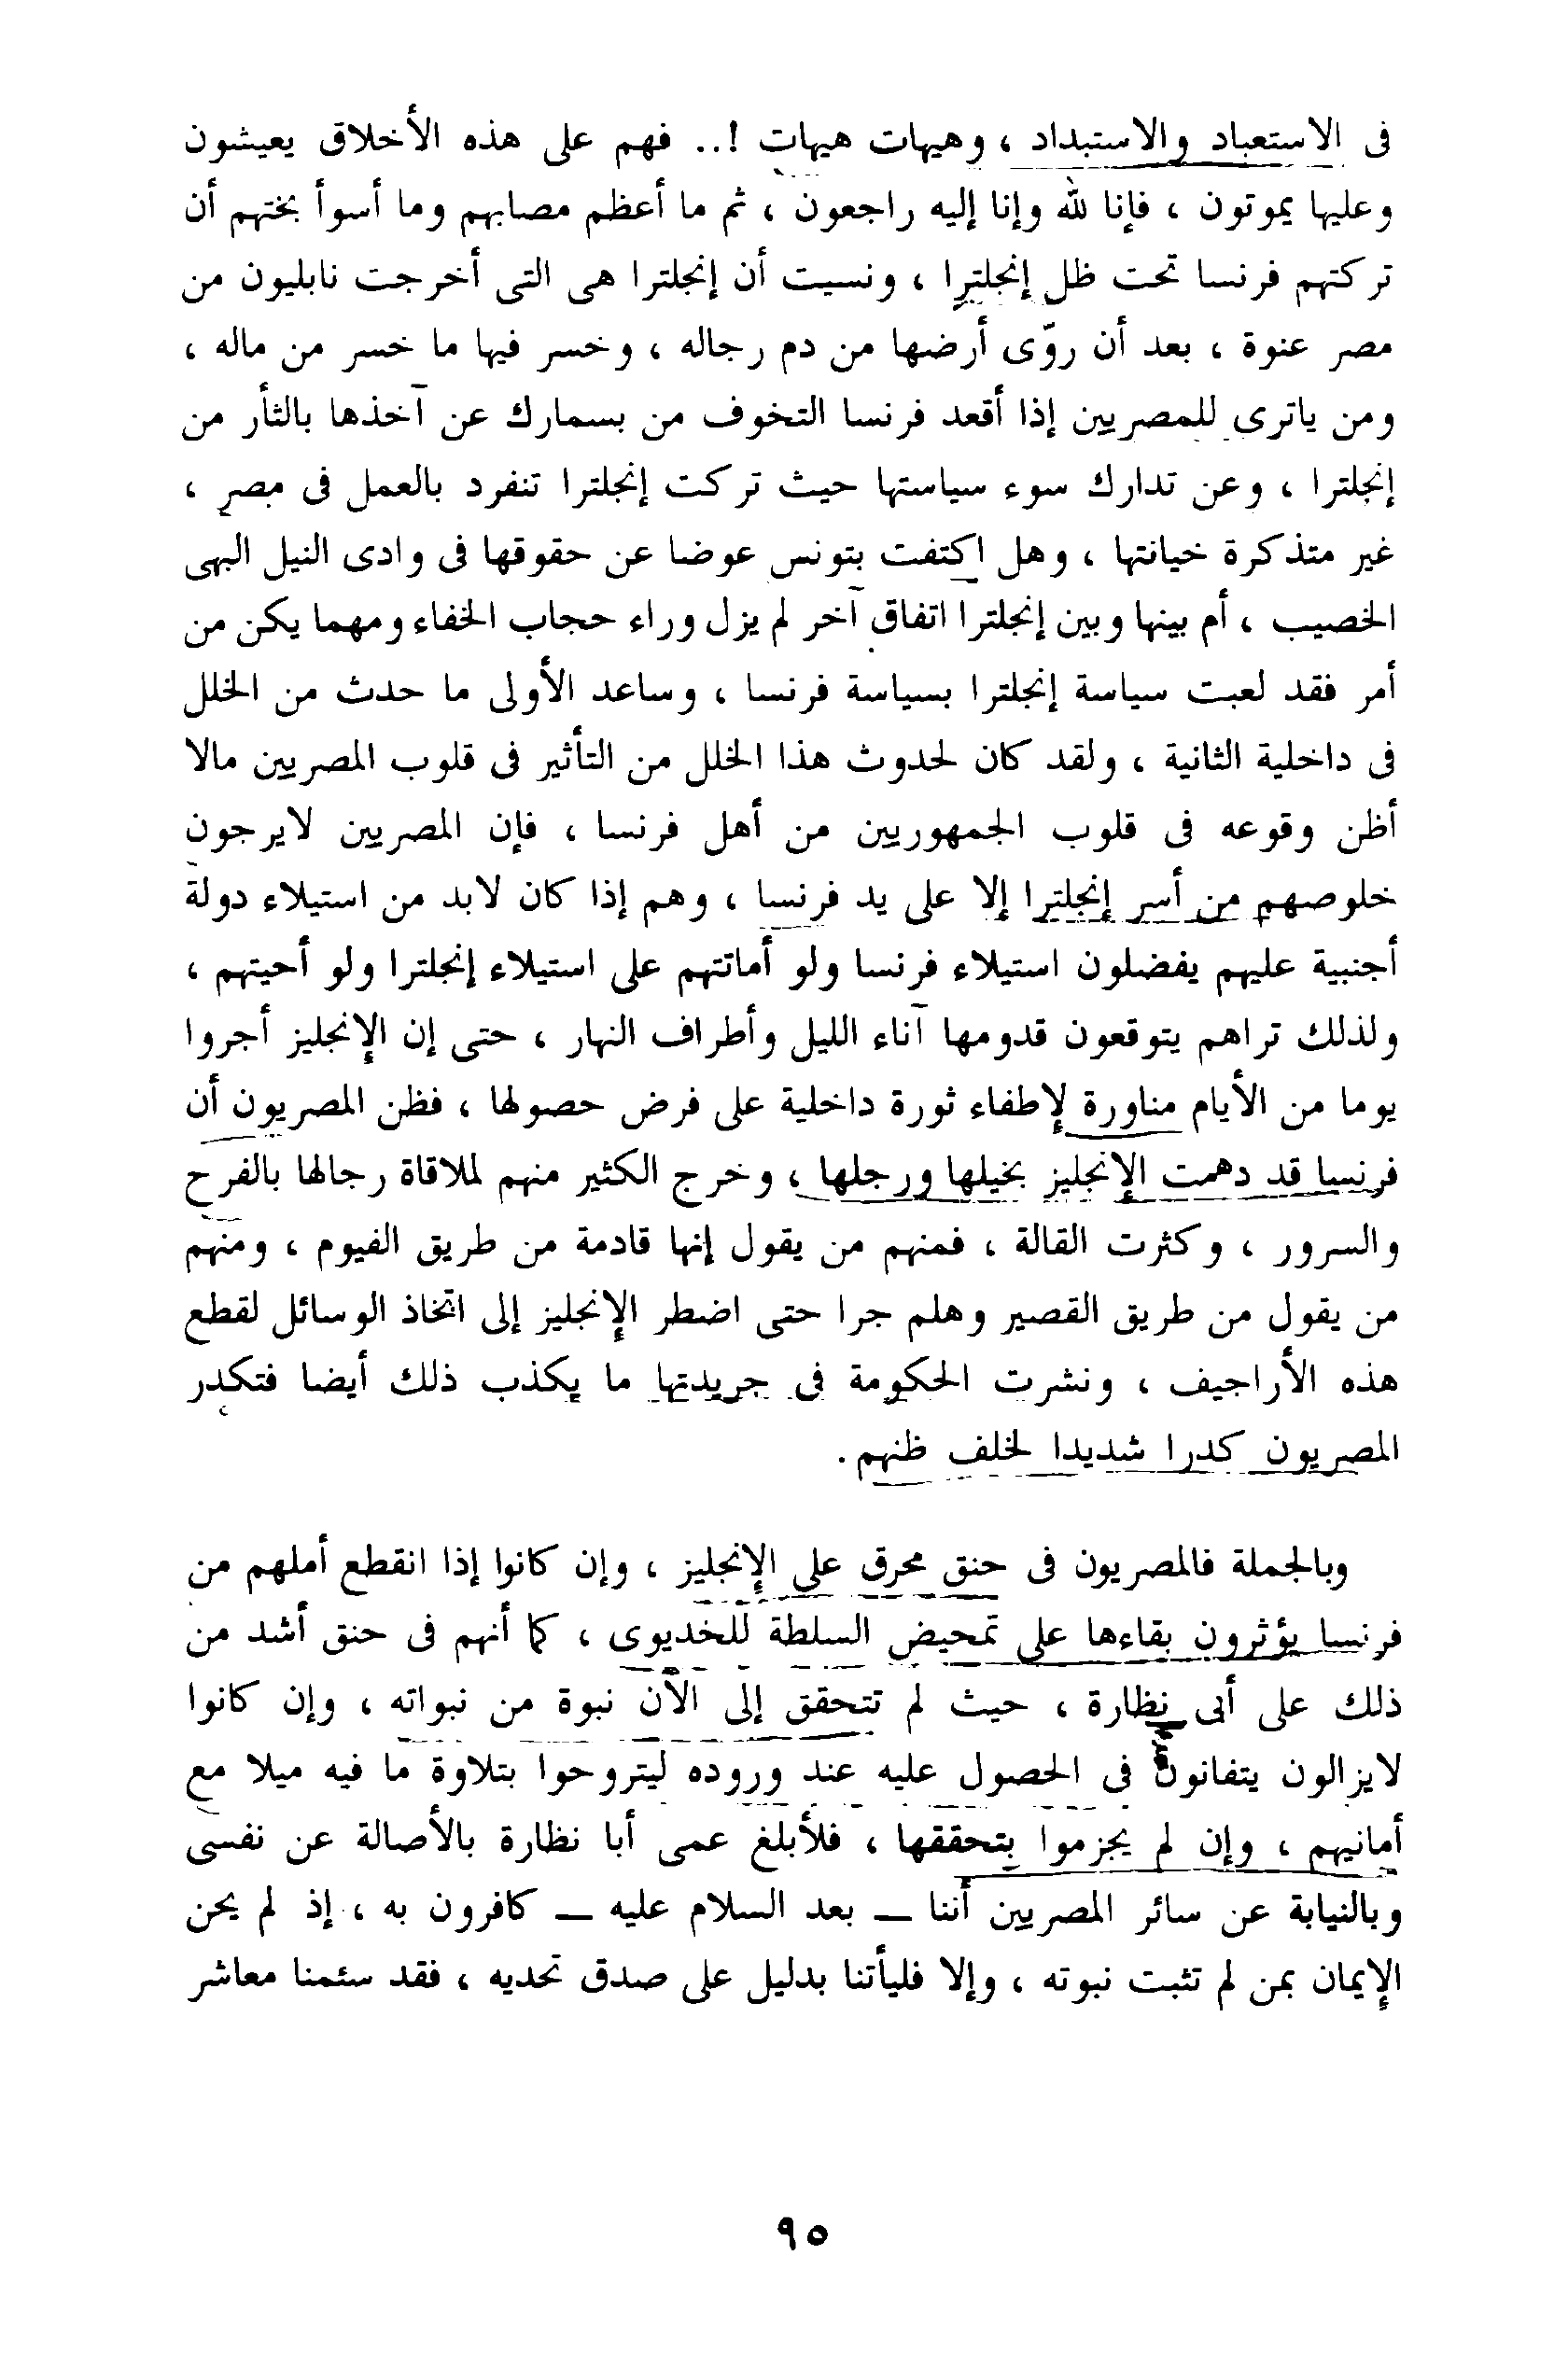 فى الاستعباد والاستبداد ، وهيهات هيهات ! .. فهم على هذه الأخلاق يعيشون
وعليها يموتون ، فإنا لله وإنا إليه راجعون ، ثم ما أعظم مصابهم وما أسوأ بختهم أن
تركتهم فرنسا تحت ظل إنجلترا ، ونسيت أن إنجلترا هى التى أخرجت نابليون من
مصر عنوة ، بعد أن روّى أرضها من دم رجاله ، وخسر فيها ما خسر من ماله ،
ومن ياترى للمصريين إذا أقعد فرنسا التخوف من بسمارك عن آخذها بالثأر من
إنجلترا ، وعن تدارك سوء سياستها حيث تركت إنجلترا تنفرد بالعمل فى مصر ،
غير متذكرة خيانتها ، وهل اكتفت بتونس عوضا عن حقوقها فى وادى النيل البهى
الخصيب ، أم بينها وبين إنجلترا اتفاق آخر لم يزل وراء حجاب الخفاء ومهما يكن من
أمر فقد لعبت سياسة إنجلترا بسياسة فرنسا ، وساعد الأولى ما حدث من الخلل
فى داخلية الثانية ، ولقد كان لحدوث هذا الخلل من التأثير فى قلوب المصريين مالا
أظن وقوعه فى قلوب الجمهوريين من أهل فرنسا ، فإن المصريين لايرجون
خلوصهم من أسر إنجلترا إلا على يد فرنسا ، وهم إذا كان لابد من استيلاء دولة
أجنبية عليهم يفضلون استيلاء فرنسا ولو أماتتهم على استيلاء إنجلترا ولو أحيتهم ،
ولذلك تراهم يتوقعون قدومها آناء الليل وأطراف النهار ، حتى إن الإنجليز أجروا
يوما من الأيام مناورة لإطفاء ثورة داخلية على فرض حصولها ، فظن المصريون أن
فرنسا قد دهمت الإنجليز بخيلها ورجلها ، وخرج الكثير منهم لملاقاة رجالها بالفرح
والسرور ، وكثرت القالة ، فمنهم من يقول إنها قادمة من طريق الفيوم ، ومنهم
من يقول من طريق القصير وهلم جرا حتى اضطر الإنجليز إلى اتخاذ الوسائل لقطع
هذه الأراجيف ، ونشرت الحكومة فى جريدتها ما يكذب ذلك أيضا فتكدر
المصريون كدرا شديدا لخلف ظنهم .
وبالجملة فالمصريون فى حنق محرق على الإنجليز ، وإن كانوا إذا انقطع أملهم من
فرنسا يؤثرون بقاءها على تمحيض السلطة للخديوى ، كما أنهم فى حنق أشد من
ذلك على أبى نظارة ، حيث لم تتحقق إلى الآن نبوة من نبواته ، وإن كانوا
لايزالون يتفانون فى الحصول عليه عند وروده ليتروحوا بتلاوة ما فيه ميلا مع
أمانيهم ، وإن لم يجزموا بتحققها ، فلأبلغ عمى أبا نظارة بالأصالة عن نفسى
وبالنيابة عن سائر المصريين أننا — بعد السلام عليه — كافرون به ، إذ لم يحن
الإيمان بمن لم تثبت نبوته ، وإلا فليأتنا بدليل على صدق تحديه ، فقد سئمنا معاشر
٩٥